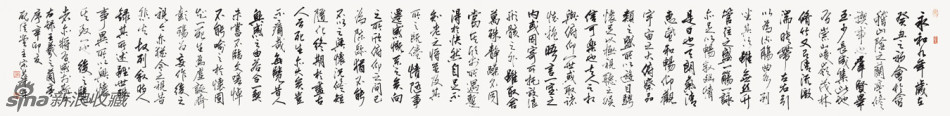 永和九年歲在
癸丑暮春之初會於會
稽山陰之蘭亭脩
禊事也群賢畢
至少長咸集此地
有崇山峻嶺茂林
脩竹又有清流激
湍映帶左右引
以為流觴曲水列
坐其次雖無絲竹
管弦之盛一觴一詠
亦足以暢敘幽情
是日也天朗氣清
惠風和暢仰觀
宇宙之大俯察品
類之盛所以遊目騁
懷足以極視聽之娛
信可樂也夫人之相
與俯仰一世或取諸
懷抱晤言一室之
內或因寄所託放浪
形骸之外雖取舍
萬殊靜躁不同
當其欣於所遇暫
得於己快然自足不
知老之將至及其
所之既倦情隨事
遷感慨係之矣向
之所欣俛仰之間已
為陳跡猶
不以之興懷況脩短
隨化終期於盡古
人云死生亦大矣豈
不痛哉每攬昔人
興感之由若合一契
未嘗不臨文嗟悼
不能喻之於懷固知
一死生為虛誕齊
彭殤為妄作後之
視今亦猶今之視昔
悲夫故列敘時人
錄其所述雖世殊
事異所以興懷
其致一也後之覽
者亦將有感於斯文
右錄王羲之蘭亭
sina新浪收藏